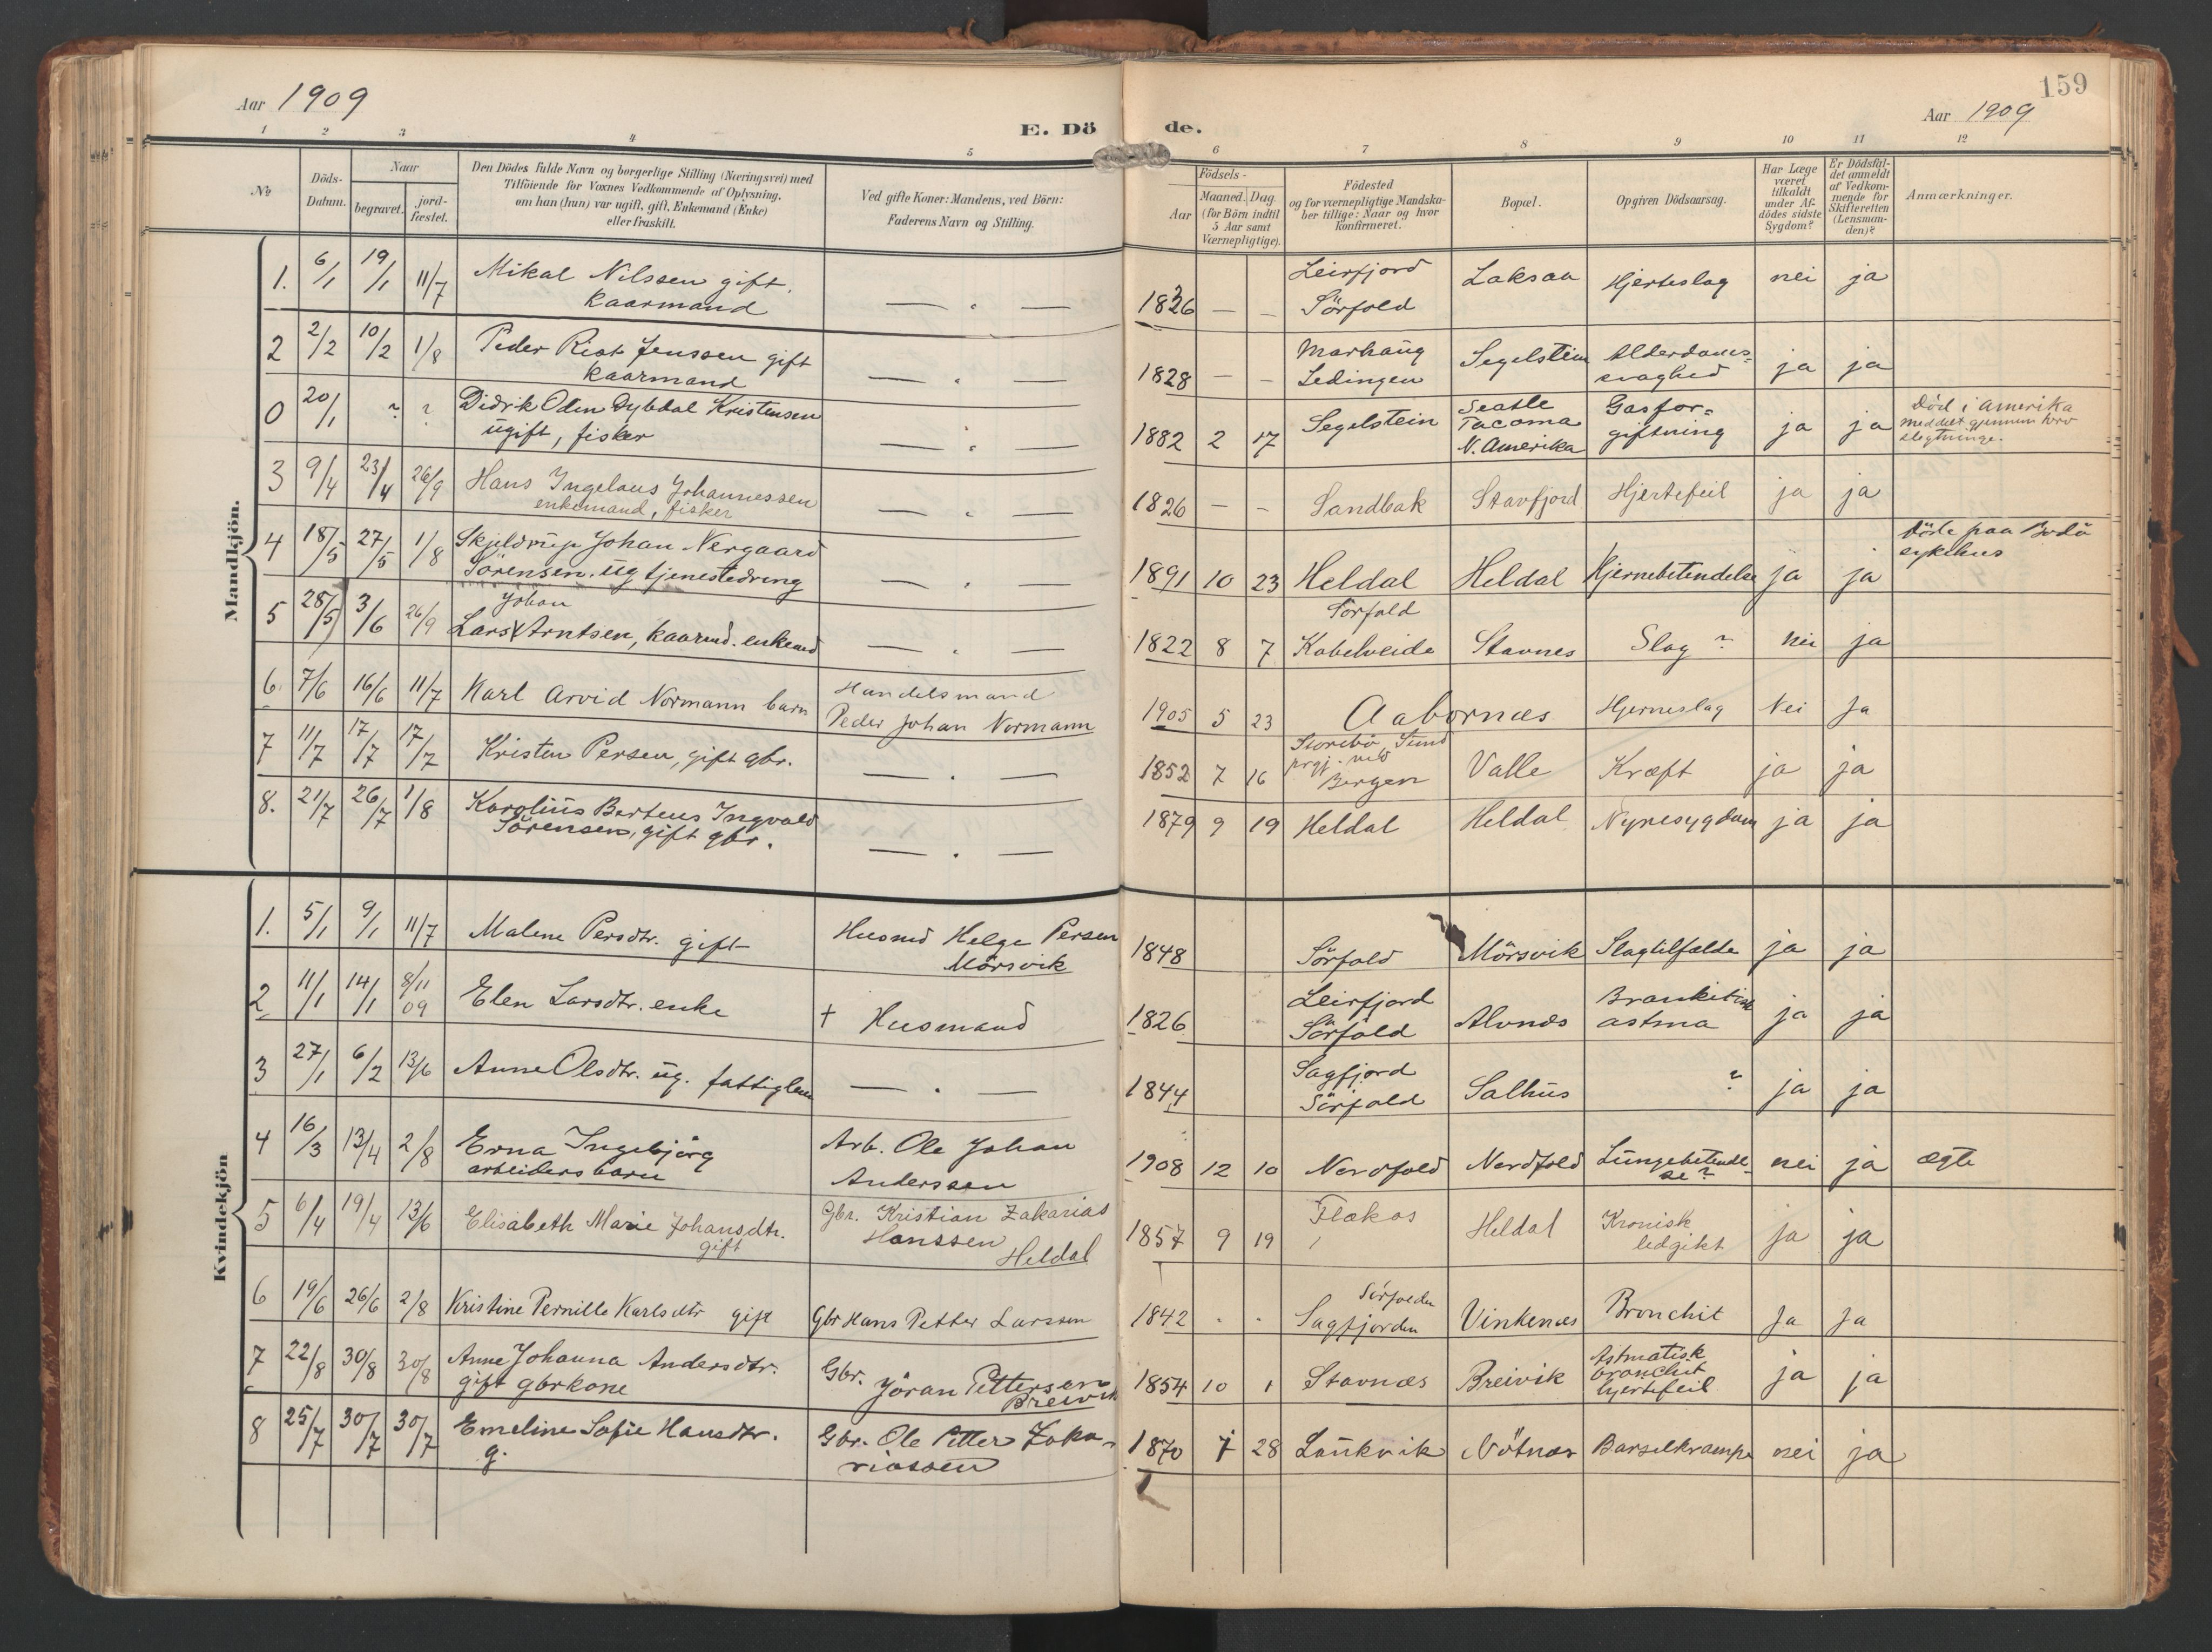 Aar 1909
E. Dö de.
159
Aar 1909
1 2 3 4 5 6 7 8 9 10 11 12
№
Döds-
Datum.
Naar
begravet.
jord-
fæstet.
Den Dödes fulde Navn og borgerlige Stilling (Næringsvei) med
Tilföiende for Voxnes Vedkommende af Oplysning,
om han (hun) var ugift, gift, Enkemand (Enke)
eller fraskilt.
Ved gifte Koner: Mandens, ved Börn:
Faderens Navn og Stilling.
Födsels-
Aar
Maaned. Dag.
(for Börn indtil
5 Aar samt
Værnepligtige).
Födested
og for værnepligtige Mandska-
ber tillige: Naar og hvor
konfirmeret.
Bopæl.
Opgiven Dödsaarsag.
Har Læge
været
tilkaldt
under Af-
dödes sidste
Sygdom?
Er Dödsfal-
det anmeldt
af Vedkom-
mende for
Skifteretten
(Lensman-
den)?
Anmærkninger.
Mandkjön.
1. 6/1 19/1 11/7 Mikal Nilssen gift.
kaarmand — " —
1826 — — Leirfjord
Sörfold Laksaa Hjerteslag nei ja
2 2/2 10/2 1/8 Peder Rist Jenssen gift
kaarmand — " —
1828 — — Marhaug
Lödingen Segelstein Alderdoms-
svaghed ja ja
0 20/1 ? ? Didrik Odin Dybdal Kristensen
ugift, fisker — " —
1882 2 17 Segelstein Seatle
Tacoma
N. Amerika Gasfor-
giftning ja ja Död i Amerika
meddelt gjennem hvv
slegtninge.
3 9/4 23/4 26/9 Hans Ingelaus Johannessen
enkemand, fisker — " —
1826 — — Sandbak Stavfjord Hjertefeil ja ja
4 18/5 27/5 1/8 Skjeldrup Johan Nergaard
Sörensen. ug tjenestedreng — " —
1891 10 23 Heldal Heldal Hjernebetendelse ja ja Döde paa Bodö
sykehus
5 28/5 3/6 26/9 Johan
Lars Arntsen, kaarmd. enkemd — " —
1822 8 7 Sörfold
Kobelveide Stavnes Slag ? nei ja
6. 7/6 16/6 11/7 Karl Arvid Normann barn Handelsmand
Peder Johan Normann
1905 5 23 Aabornæs Hjerneslag Nei Ja
7 11/7 17/7 17/7 Kristen Persen, gift gbr. — " —
1852 7 16 Storebö, Sund
prgj. ved
Bergen Valle Kræft ja ja
8. 21/7 26/7 1/8 Karolius Berteus Ingvald
Sörensen, gift gbr. — " —
1879 9 19 Heldal Heldal Nyresygdom ja ja
Kvindekjön
1. 5/1 9/1 11/7 Malene Persdtr. gift Husmd Helge Persen
Mörsvik
1848 Sörfold Mörsvik Slagtilfælde ja ja
2 11/1 14/1 8/11
09 Elen Larsdtr. enke † Husmand
1826 Leirfjord
Sörfold Alvnæs Brankitisk
astma ja ja
3 27/1 6/2 13/6 Anne Olsdtr. ug. fattiglem — " —
1844 Sagfjord
Sörfold Salhus ? ja ja
4 16/3 13/4 2/8 Erna Ingebjörg
arbeiders barn Arb. Ole Johan
Anderssen
1908 12 10 Nordfold Nordfold Lungebetendel-
se? nei ja ægte
5 6/4 19/4 13/6 Elisabeth Marie Johansdtr.
gift Gbr. Kristian Zakarias
Hanssen
Heldal
1857 9 19 Flakas Heldal Kronisk
ledgikt ja ja
6 19/6 26/6 2/8 Kristine Pernille Karlsdtr gift Gbr Hans Petter Larssen
1842 " " Sörfolden
Sagfjorden Vinkenæs Bronchit Ja Ja
7 22/8 30/8 30/8 Anne Johanna Andersdtr.
gift gbrkone Gbr. Jöran Pettersen
Breivik
1854 10 1 Stavnæs Breivik Astmatisk
bronchit
hjertefeil ja ja
8 25/7 30/7 30/7 Emeline Sofie Hansdtr.
g. Gbr. Ole Petter Zaka-
riassen
1870 7 28 Laukvik Nötnæs Barselkrampe nei ja